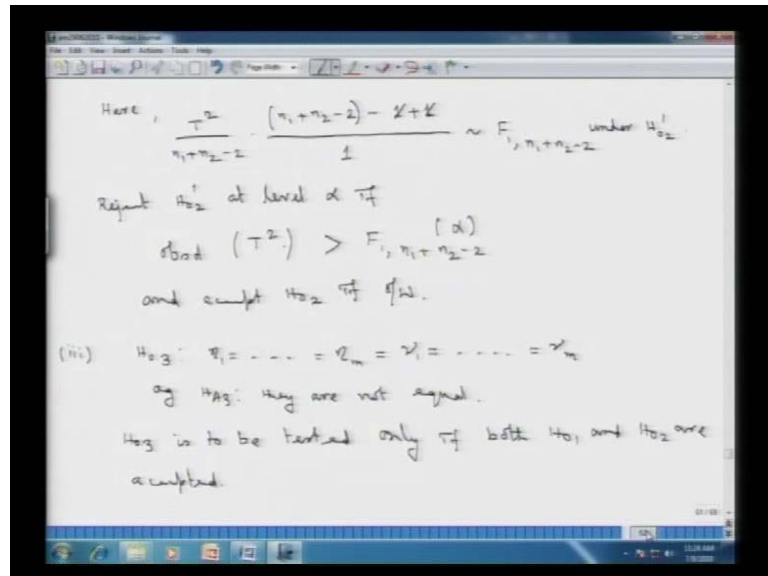 Windows Journal
File Edit View Insert Actions Tools Help
Page Width
Here, T² / n₁+n₂-2 · (n₁+n₂-2) - 1 + 1 / 1 ~ F₁, n₁+n₂-2 under H'₀₂.
Reject H'₀₂ at level α if
obsd (T²) > F₁, n₁+n₂-2 (α)
and accept H₀₂ if o/w.
(iii) H₀₃: η₁ = - - - - = η_m = ν₁ = - - - - - = ν_m
ag H_A3: they are not equal.
H₀₃ is to be tested only if both H₀₁ and H₀₂ are
accepted.